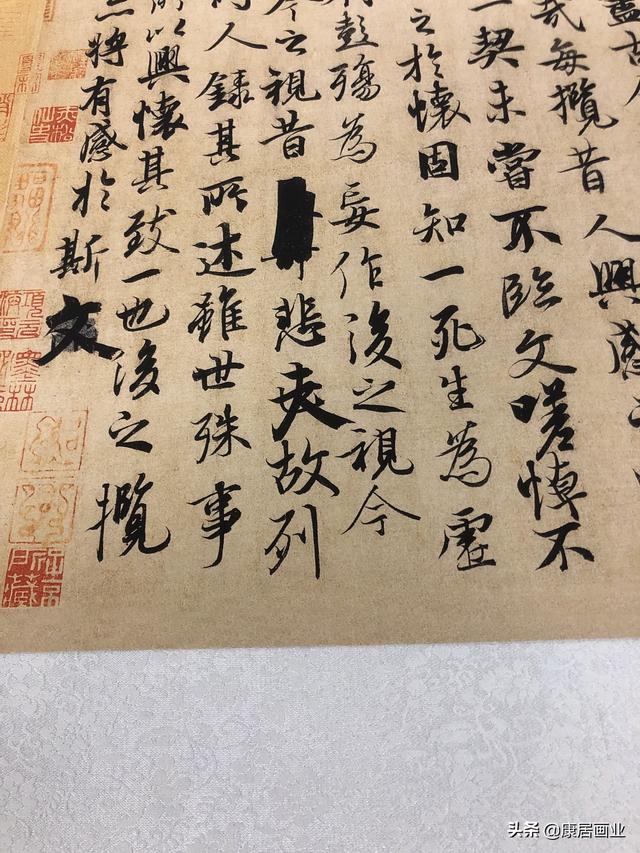 盡古人
哉每攬昔人興感
一契未嘗不臨文嗟悼不
之於懷固知一死生為虛
彭殤為妄作後之視今
今之視昔悲夫故列
人錄其所述雖世殊事
所以興懷其致一也後之攬
將有感於斯文
头条 @康居画业